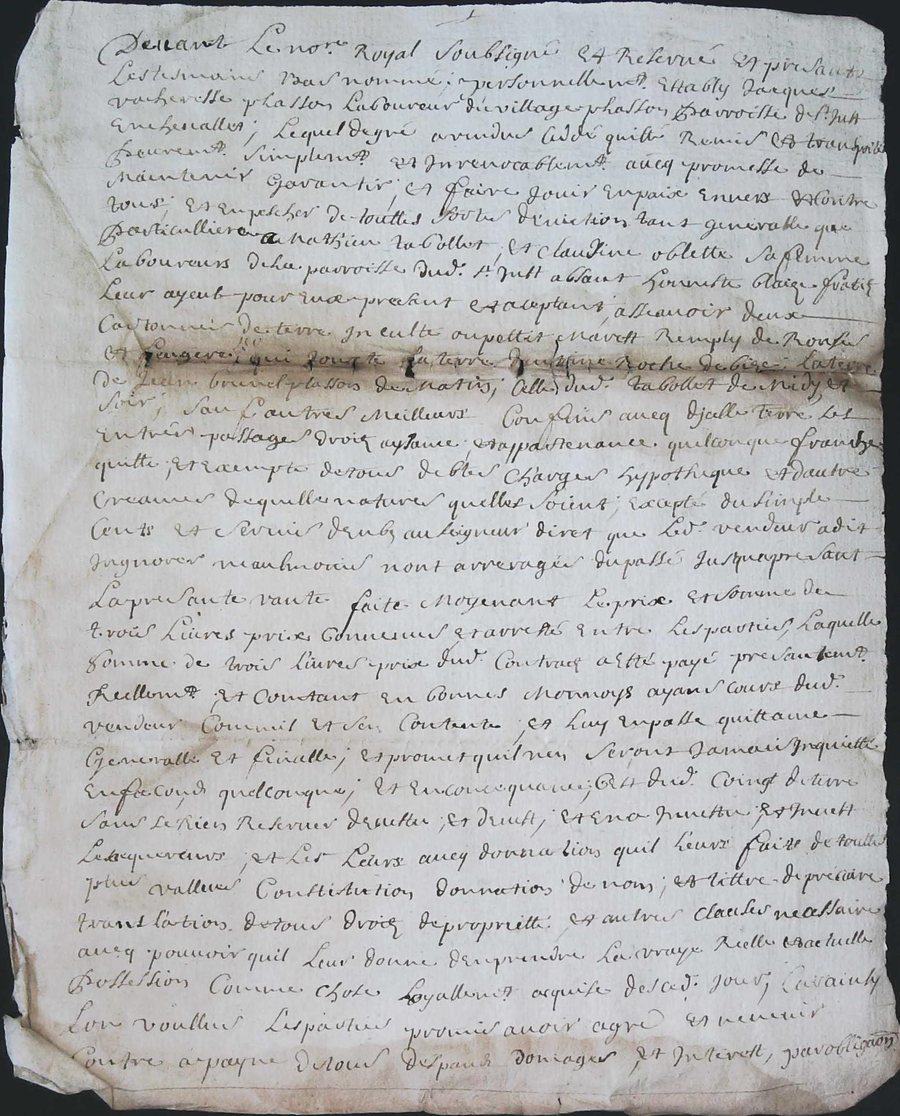 Devant Le no.re Royal Soubsigné Et Reservé Et presants
Lestesmoins bas nommé; personnellem.t Estably Jacques
vacheresse plasson Laboureur du village plasson parroisse de St Just
Enchevallet; Lequel degré a vendus Ceddé quitté Remis Et transporté
purem.t simplem.t Et Irrevocablem.t avecq promesse de
Maintenir Garantir; et faire Jouir En paix Envers Et Contre
tous; Et Enpecher de touttes sortes d'Eviction tant generalle que
particulliere a Mathieu tabollet, et Claudine oblette sa femme
Laboureurs dela parroisse dud. St Just absant honneste blaize
Leur ayeul pour Eux present Et aceptant, assavoir deux
Cartonnées de terre Inculte ou pettit Remply de Ronses
et faugere; qui Jouxte La terre Roche de bize, La terre
de Jean brunel plasson de matin; Celle dud. tabollet de Midy et
soir; sauf autres Meilleurs Confins avecq dicelle Terre Les
Entrées passages droiz aysance; et appartenance quelconque franche
quitte; Et Exempte de tous debtes Charges hypotheque Et dautre
Creances de quelle natures quelles soient; Excepté du simple
Cens Et Servis deub au seigneur diret que Led. vendeur a dit
Ingnorer neaulmoins nont arrerages du passé Jusqua presant
La presante vante faite Moyenant Le prix Et somme de
trois Livres prix Convenus Et arresté Entre Les parties, Laquelle
Somme de trois Livres prix dud. Contract a Esté payé presantem.t
Reellem.t Et Contant En bonnes Monnoys ayant Cours dud.
vendeur Comm'il Et sen Contente; et Luy En passe quittance
Generalle Et finalle; Et promet quil nen seront Jamais Inquietté
En façond quelconque; Et En Concequance; Cest dud. Coing de terre
Sans se Rien Reserver devestu; et Devest; Et En a Investu; Et Invest
Les aquereurs; et Les Leurs avecq donnation quil Leurs faits de toutte
plus vallues Constitution donnation de nom; Et tittre de precaire
translation de tous droiz de proprietté Et autres Clauses necessaire
avecq pouvoir quil Leur donne d'En prendre La vraye Rielle Et actuelle
Possession Comme Chose Loyallem.t aquise des ced. Jour; Car ainsy
Lon voullus Les parties promis avoir agré Et ne venir
Contre a payne de tous despans domages Et Interest, par obligaon